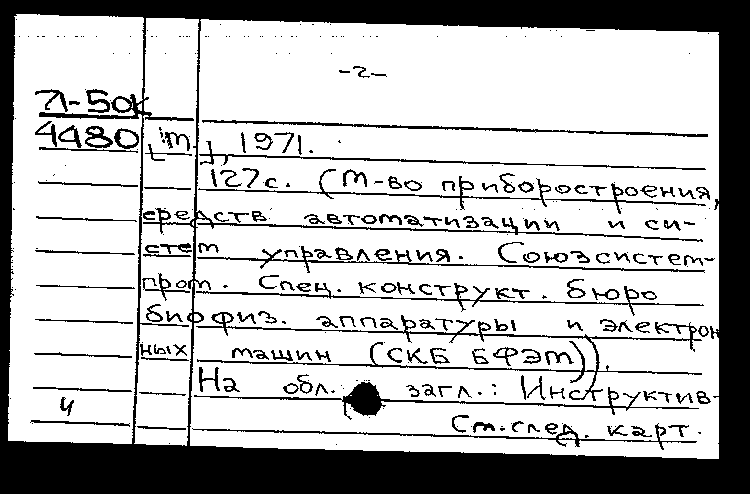 -2-
71-50к
4480 [М.], 1971.
127с. (М-во приборостроения,
средств автоматизации и си-
стем управления. Союзсистем-
пром. Спец. конструкт. бюро
биофиз. аппаратуры и электрон
ных машин (СКБ БФЭМ)).
На обл. загл.: Инструктив-
Ст. след. карт.
4